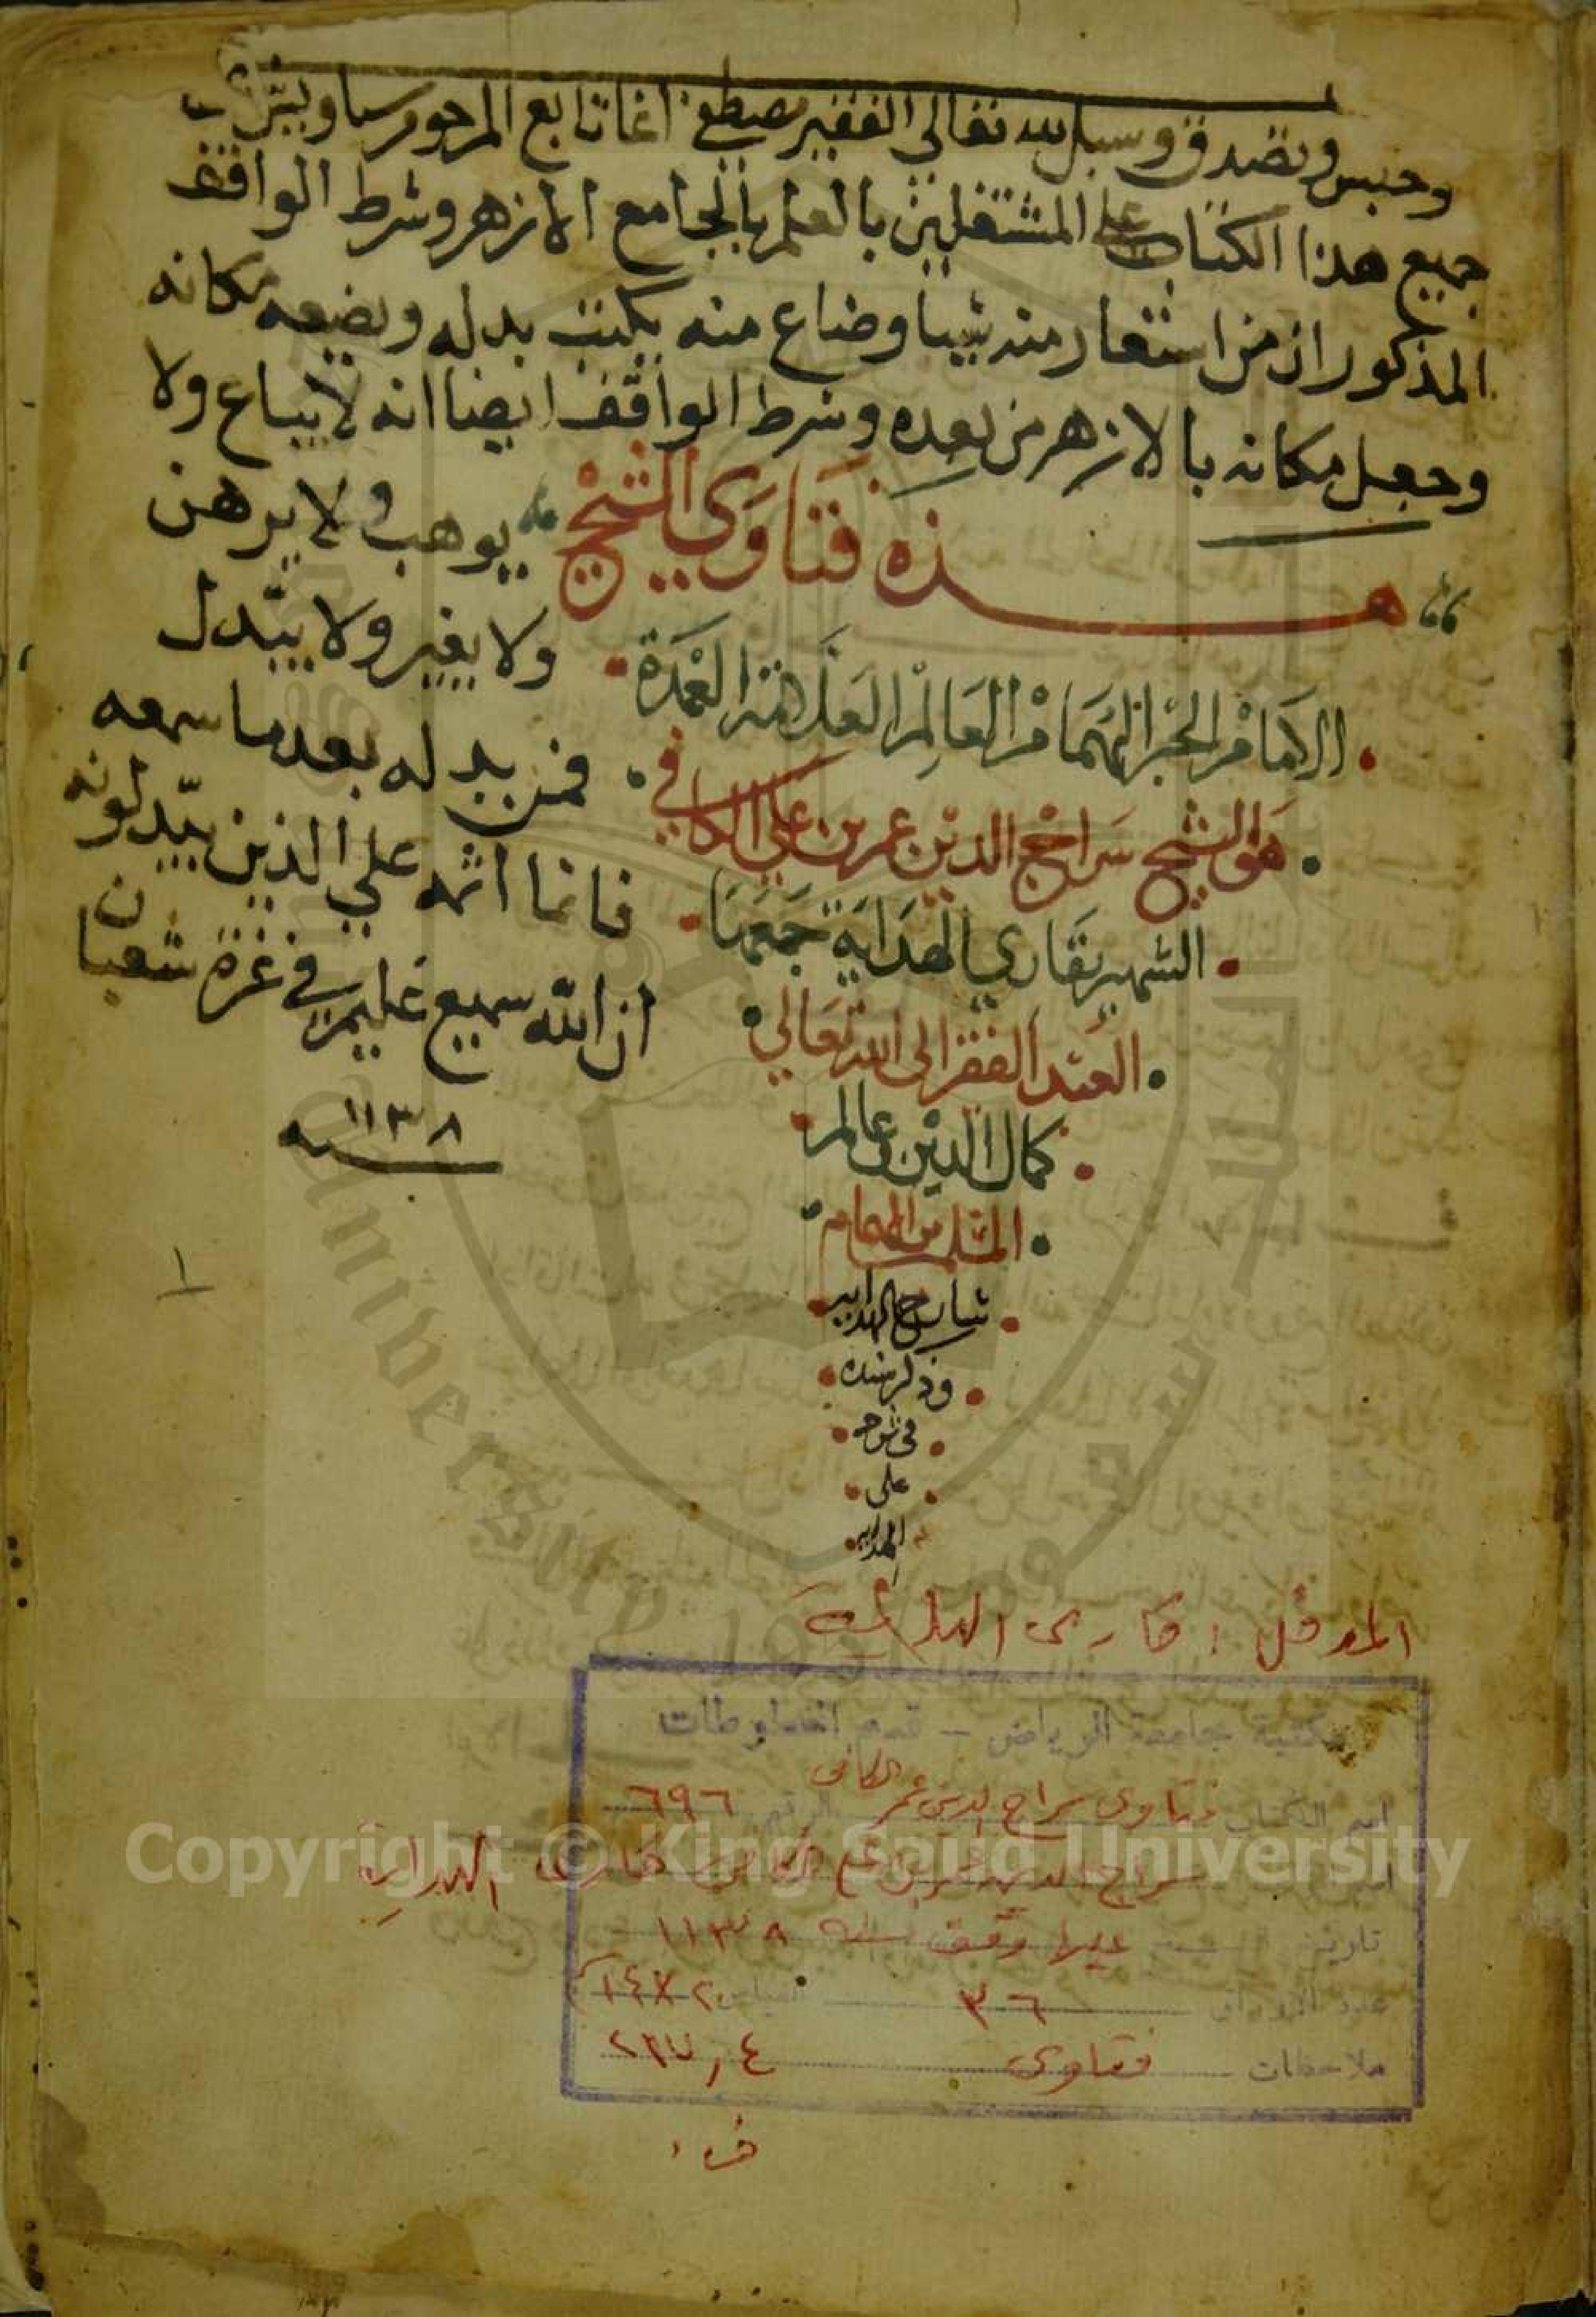 وحبس وتصدق وسبل لله تعالى الفقير مصطفى اغا تابع المرحوم
جميع هذا الكتاب على المشتغلين بالعلم بالجامع الازهر وشرط الواقف
المذكور ان من استعار منه شيا وضاع منه يكتب بدله ويضعه مكانه
وجعل مكانه بالازهر من بعده وشرط الواقف ايضا انه لا يباع ولا
يوهب ولا يرهن
ولا يغير ولا يبتدل
فمن بدله بعدما سمعه
فانما اثمه على الذين يبدلونه
ان الله سميع عليم في غرة شعبان
سنه ١١٣٨
هذه فتاوي الشيخ
الامام الحبر الهمام العالم العلامة العمدة
هو الشيخ سراج الدين عمر بن علي الكافي
الشهير بقاري الهداية جمعها
العبد الفقير الى الله تعالى
كمال الدين عالم
الهمام
شارح الهدايه
وذكر سنده
في شرحه
على
الهدايه
١
المؤلف : قارىء الهداية
مكتبة جامعة الرياض - قسم المخطوطات
اسم الكتاب فتاوى سراج الدين عمر الكافى الرقم ٦٩٦
سراج الدين عمر بن علي الكافى قارىء الهداية
تاريخ عليها وقف سنة ١١٣٨
عدد الاوراق ٣٦ القياس
ملاحظات فتاوى ٢١٧٫٤
Copyright © King Saud University